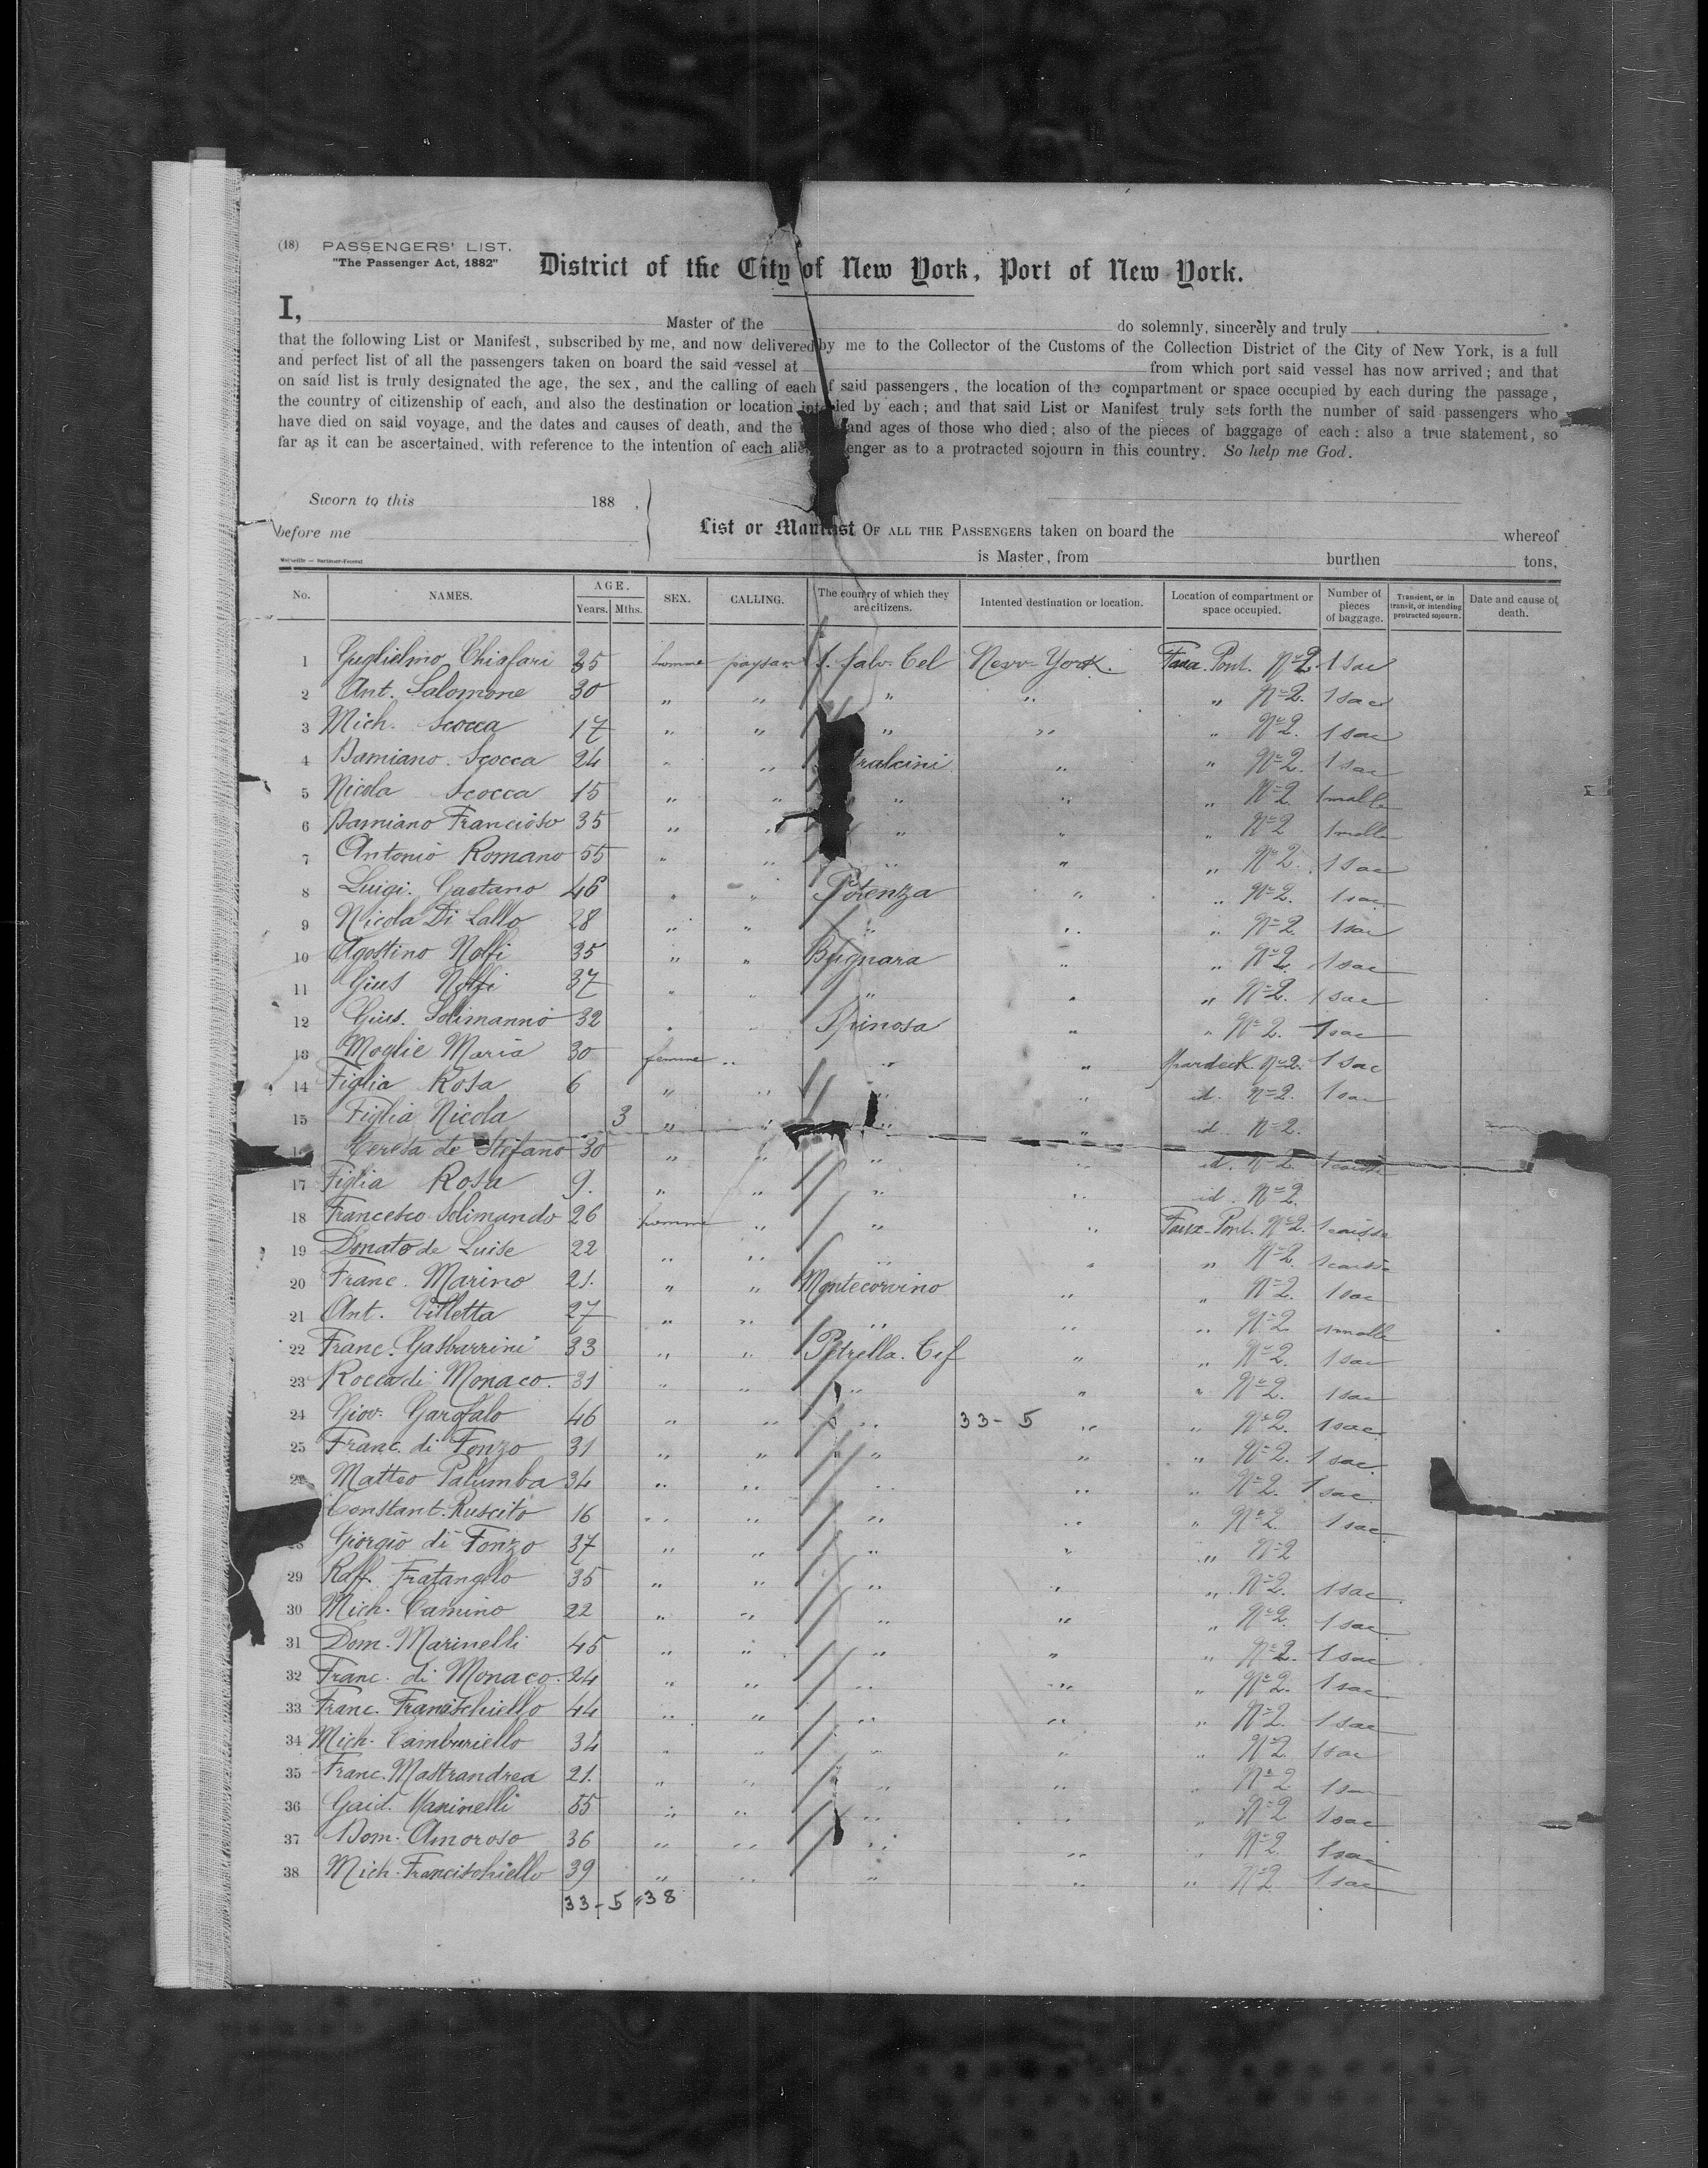 (18) PASSENGERS' LIST.
"The Passenger Act, 1882"
District of the City of New York, Port of New York.
I, Master of the do solemnly, sincerely and truly
that the following List or Manifest, subscribed by me, and now delivered by me to the Collector of the Customs of the Collection District of the City of New York, is a full
and perfect list of all the passengers taken on board the said vessel at from which port said vessel has now arrived; and that
on said list is truly designated the age, the sex, and the calling of each of said passengers, the location of the compartment or space occupied by each during the passage,
the country of citizenship of each, and also the destination or location intended by each; and that said List or Manifest truly sets forth the number of said passengers who
have died on said voyage, and the dates and causes of death, and the and ages of those who died; also of the pieces of baggage of each: also a true statement, so
far as it can be ascertained, with reference to the intention of each alien enger as to a protracted sojourn in this country. So help me God.
Sworn to this 188 .
before me
List or Manifest OF ALL THE PASSENGERS taken on board the whereof
is Master, from burthen tons,
No. NAMES. AGE. Years. Mths. SEX. CALLING. The country of which they are citizens. Intented destination or location. Location of compartment or space occupied. Number of pieces of baggage. Transient, or in transit, or intending protracted sojourn. Date and cause of death.
1 Guglielmo Chiafari 25 homme paysan S. Salv. Cel New-York. Faux. Pont. No 2. 1 sac
2 Ant. Salomone 30 " " " " " No 2. 1 sac
3 Mich. Scocca 17 " " " " " No 2. 1 sac
4 Damiano. Scocca 24 " " tralcini " " No 2. 1 sac
5 Nicola Scocca 15 " " " " " No 2. 1 malle
6 Damiano Francioso 35 " " " " " No 2 1 malle
7 Antonio Romano 55 " " " " " No 2. 1 sac
8 Luigi. Gaetano 46 " " Potenza " " No 2. 1 sac
9 Nicola Di Lallo 28 " " " " " No 2. 1 sac
10 Agostino Nolfi 35 " " Bugnara " " No 2. 1 sac
11 Gius Nolfi 37 " " " " " No 2. 1 sac
12 Gius. Solimanno 32 " " Spinosa " " No 2. 1 sac
13 Moglie Maria 30 femme " " " Spardeck No 2. 1 sac
14 Figlia Rosa 6 " " " " id. No 2. 1 sac
15 Figlia Nicola 3 " " " " id No 2.
Teresa de Stefano 30 " " " " id. No 2. 1 caisse
17 Figlia Rosa 9. " " " " id. No 2.
18 Francesco Solimando 26 homme " " " Faux-Pont. No 2. 1 caisse
19 Donato de Luise 22 " " " " " No 2. 1 caisse
20 Franc. Marino 21. " " Montecorvino " " No 2. 1 sac
21 Ant. Villetta 27 " " " " " No 2 1 malle
22 Franc. Gasbarrini 33 " " Petrella. Tif " " No 2. 1 sac
23 Rocco di Monaco. 31 " " " " " No 2. 1 sac
24 Giov. Garofalo 46 " " " 33-5 " " No 2. 1 sac
25 Franc. di Fonzo 31 " " " " " No 2. 1 sac
26 Matteo Palumba 34 " " " " " No 2. 1 sac
Constant. Ruscito 16 " " " " " No 2. 1 sac
Giorgio di Fonzo 37 " " " " " No 2
29 Raff. Fratangelo 35 " " " " " No 2. 1 sac
30 Mich. Camino 22 " " " " " No 2. 1 sac
31 Dom. Marinelli 45 " " " " " No 2. 1 sac
32 Franc. di Monaco. 24 " " " " " No 2. 1 sac
33 Franc. Franischiello 44 " " " " " No 2. 1 sac
34 Mich. Camburiello 34 " " " " " No 2 1 sac
35 Franc. Mastrandrea 21. " " " " " No 2 1 sac
36 Gaid. 55 " " " " " No 2 1 sac
37 Dom. Amoroso 36 " " " " " No 2 1 sac
38 Mich. Francischiello 39 " " " " " No 2 1 sac
33-5 38